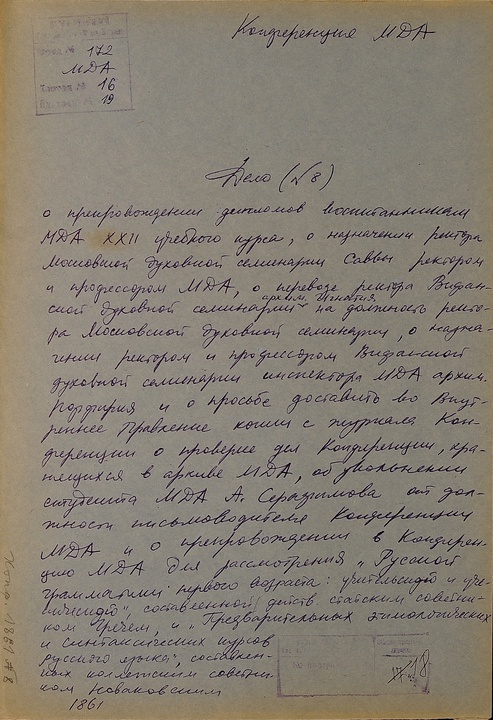 Конференция МДА
172
МДА
16
19
Дело (№8)
о препровождении дипломов воспитанникам
МДА XXII учебного курса, о назначении ректора
Московской духовной семинарии Саввы ректором
и профессором МДА, о переводе ректора Вифан-
ской духовной семинарии архим. Игнатия на должность ректо-
ра Московской духовной семинарии, о назна-
чении ректором и профессором Вифанской
духовной семинарии инспектора МДА архим.
Порфирия и о просьбе доставить во Внут-
реннее Правление копии с журнала Кон-
ференции о проверке дел Конференции, хра-
нящихся в архиве МДА, об увольнении
студента МДА А. Серафимова от дол-
жности письмоводителя Конференции
МДА и о препровождении в Конферен-
цию МДА для рассмотрения "Русской
грамматики первого возраста: учительской и уче-
нической", составленной действ. статским советни-
ком Гречем, и "Предварительных этимологических
и синтаксических курсов
русского языка", составлен-
ных коллежским советни-
ком Новаковским
1861
18
Конф. 1861 #8